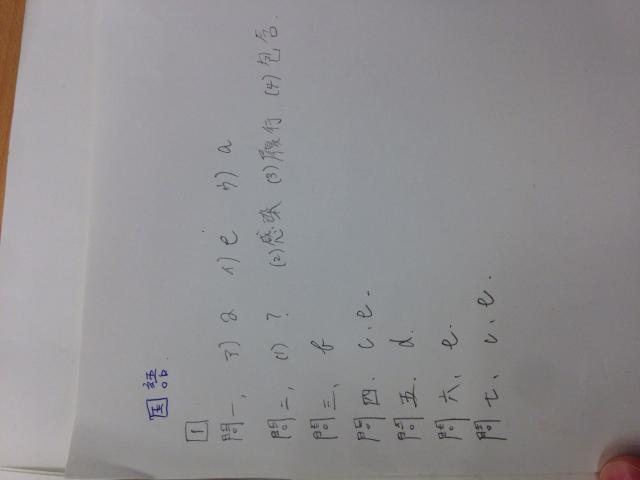 国語.
1
問一、ア) a イ) e ウ) a
問二、(1) ? (2)感染 (3)履行 (4)包含.
問三、b
問四、c、e.
問五、d.
問六、e.
問七、c、e.